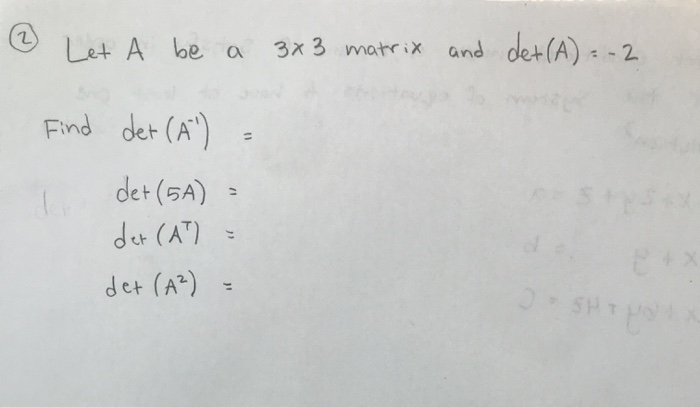 ② Let A be a 3x3 matrix and det(A) = -2
Find det(A⁻¹) =
det(5A) =
det(Aᵀ) =
det(A²) =